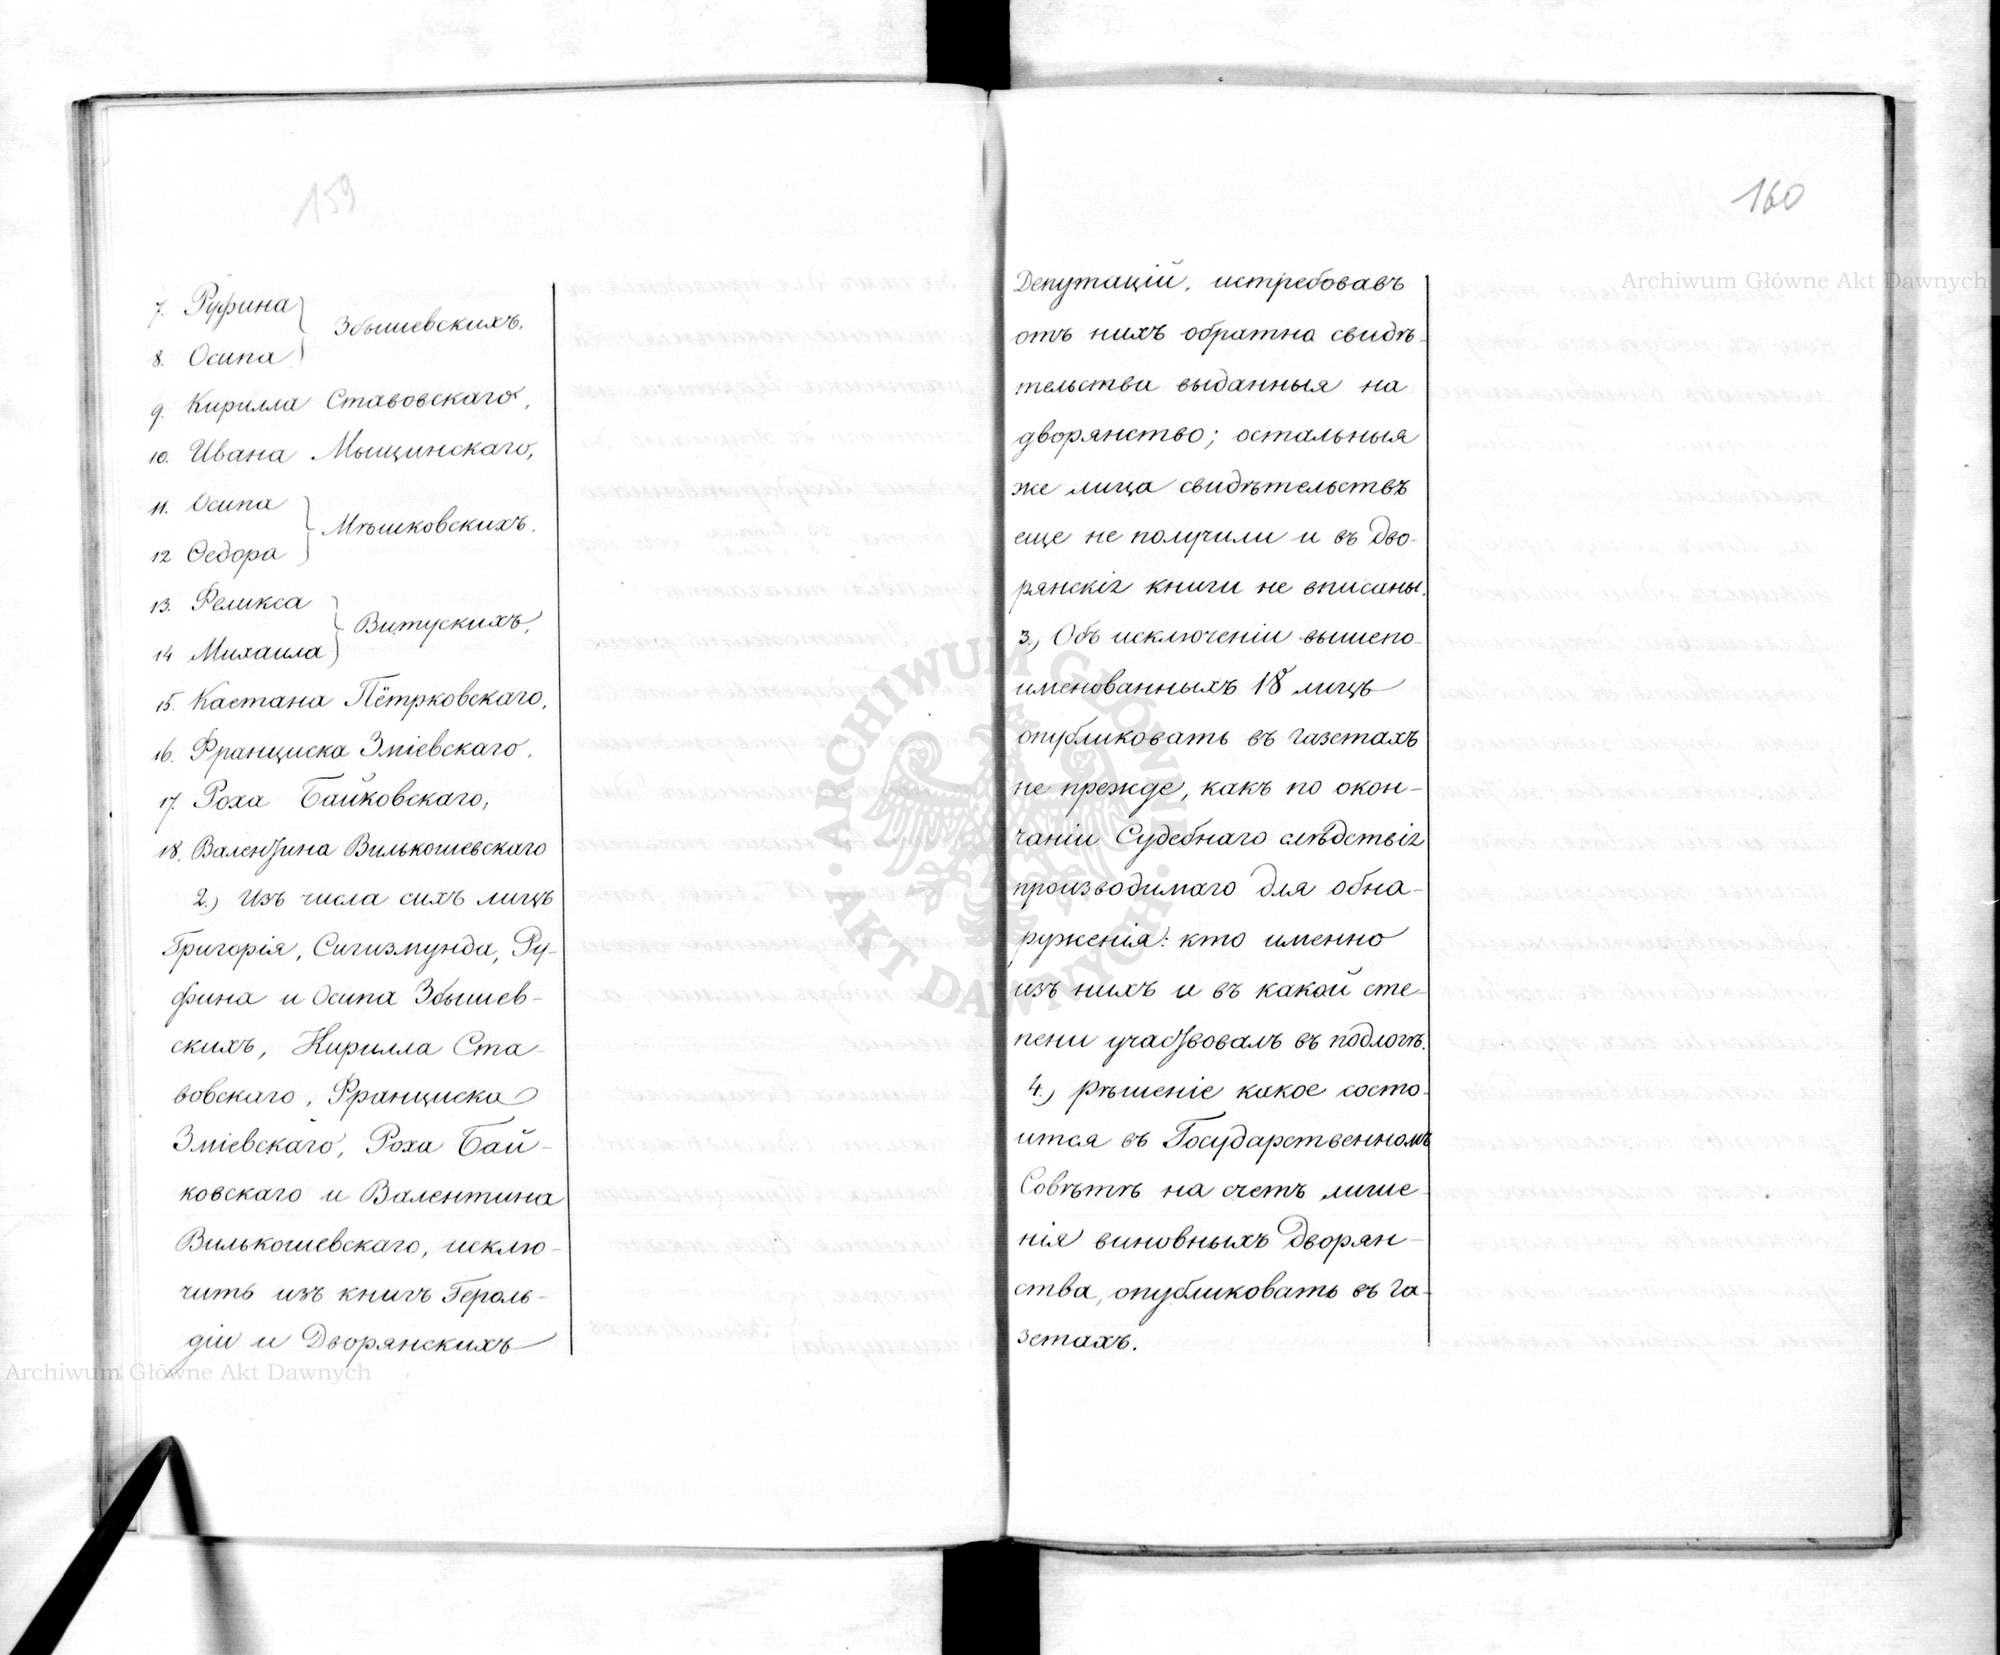 159
7. Руфина
Збышевскихъ,
8. Осипа
9. Кирилла Ставовскаго,
10. Ивана Мыщинскаго,
11. Осипа
Мѣшковскихъ.
12 Ѳедора
13. Феликса
Витускихъ,
14 Михаила
15. Каетана Пётрковскаго,
16. Франциска Зміевскаго,
17. Роха Байковскаго,
18. Валентина Вилькошевскаго
2.) Изъ числа сихъ лицъ
Григорія, Сигизмунда, Ру-
фина и Осипа Збышев-
скихъ, Кирилла Ста-
вовскаго, Франциска
Зміевскаго, Роха Бай-
ковскаго и Валентина
Вилькошевскаго, исклю-
чить изъ книгъ Героль-
діи и Дворянскихъ
160
Депутацій, истребовавъ
отъ нихъ обратно свидѣ-
тельства выданныя на
дворянство; остальныя
же лица свидѣтельствъ
еще не получили и въ Дво-
рянскія книги не вписаны.
3.) Объ исключеніи вышепо-
именованныхъ 18 лицъ
опубликовать въ газетахъ
не прежде, какъ по окон-
чаніи Судебнаго слѣдствія
производимаго для обна-
руженія: кто именно
изъ нихъ и въ какой сте-
пени участвовалъ въ подлогѣ.
4.) Рѣшеніе какое состо-
ится въ Государственномъ
Совѣтѣ на счетъ лише-
нія виновныхъ Дворян-
ства, опубликовать въ га-
зетахъ.
Archiwum Główne Akt Dawnych
Archiwum Główne Akt Dawnych
ARCHIWUM GŁÓWNE · AKT DAWNYCH ·